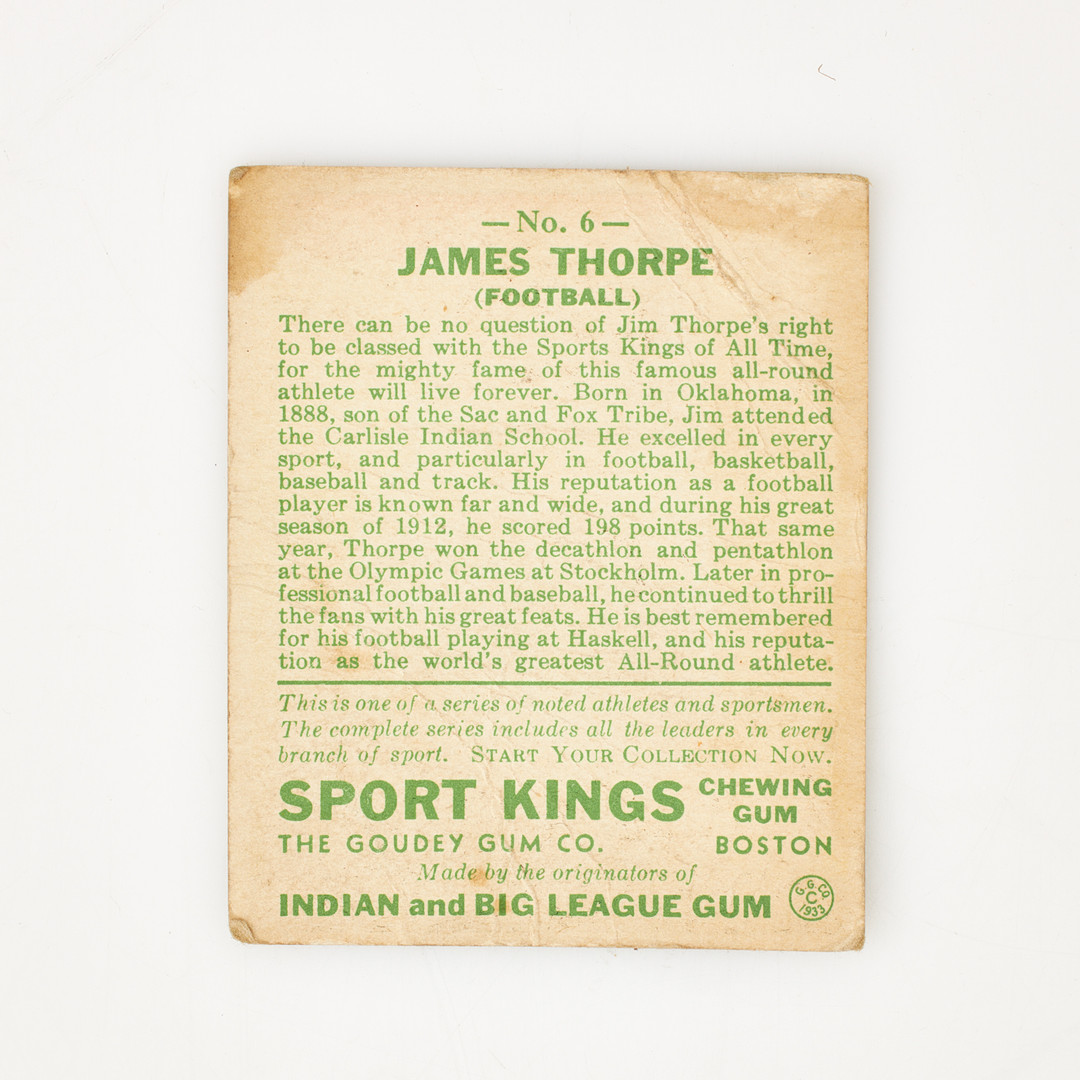 —No. 6—
JAMES THORPE
(FOOTBALL)
There can be no question of Jim Thorpe's right
to be classed with the Sports Kings of All Time,
for the mighty fame of this famous all-round
athlete will live forever. Born in Oklahoma, in
1888, son of the Sac and Fox Tribe, Jim attended
the Carlisle Indian School. He excelled in every
sport, and particularly in football, basketball,
baseball and track. His reputation as a football
player is known far and wide, and during his great
season of 1912, he scored 198 points. That same
year, Thorpe won the decathlon and pentathlon
at the Olympic Games at Stockholm. Later in pro-
fessional football and baseball, he continued to thrill
the fans with his great feats. He is best remembered
for his football playing at Haskell, and his reputa-
tion as the world's greatest All-Round athlete.
This is one of a series of noted athletes and sportsmen.
The complete series includes all the leaders in every
branch of sport. START YOUR COLLECTION NOW.
SPORT KINGS CHEWING GUM
THE GOUDEY GUM CO. BOSTON
Made by the originators of
INDIAN and BIG LEAGUE GUM
G. G. CO.
C
1933